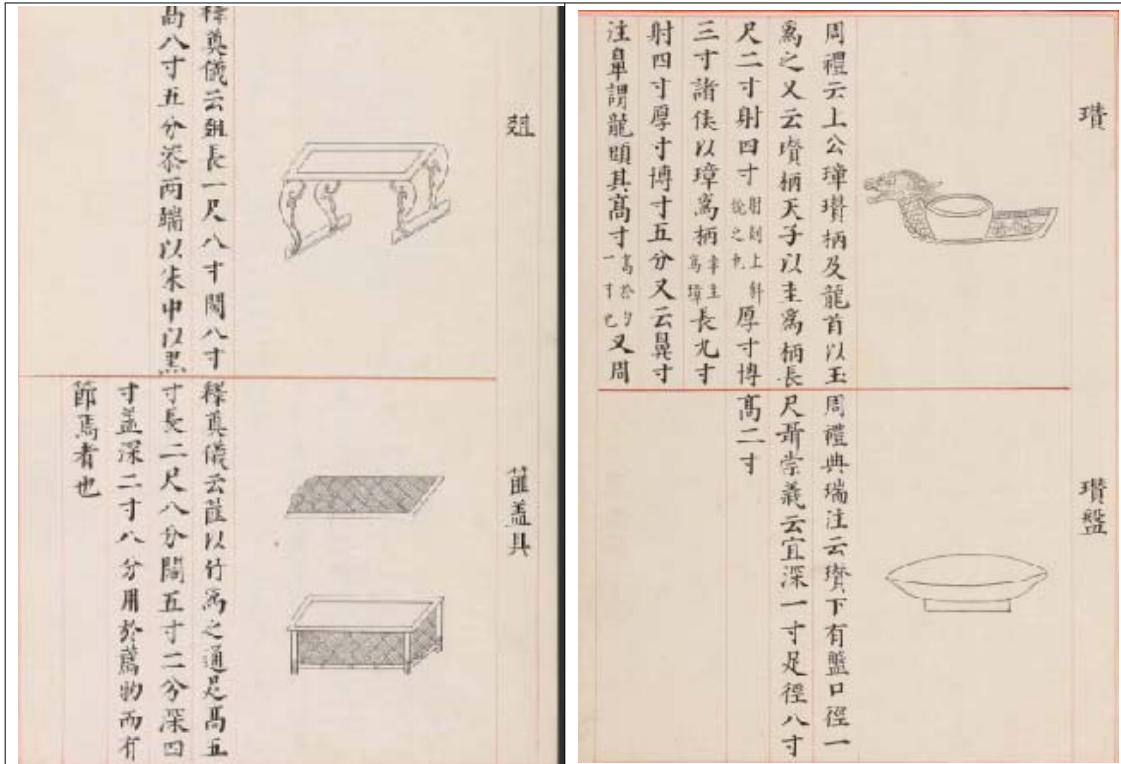 瓚
周禮云上公璋瓚柄及龍首以玉
爲之又云瓚柄天子以圭爲柄長
尺二寸射四寸射剡上斜銳之也厚寸博
三寸諸侯以璋爲柄半圭爲璋長九寸
射四寸厚寸博寸五分又云鼻寸
注鼻謂龍頭其高寸高於勺一寸也又周
瓚盤
周禮典瑞注云瓚下有盤口徑一
尺聶崇義云宜深一寸足徑八寸
高二寸
爼
釋奠儀云爼長一尺八寸闊八寸
高八寸五分漆兩端以朱中以黑
篚盖具
釋奠儀云篚以竹爲之通足高五
寸長二尺八分闊五寸二分深四
寸盖深二寸八分用於薦物而有
節焉者也